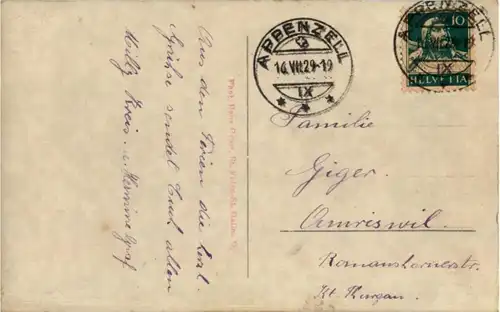 Aus den Ferien die herzl.
Grüsse sendet Euch allen
Milly Kreis. u. Hermine Graf
APPENZELL
16.VII.29-19
IX
APPENZELL
IX
10
HELVETIA
Familie
Giger.
Amriswil.
Romanshornerstr.
Kt. Thurgau.